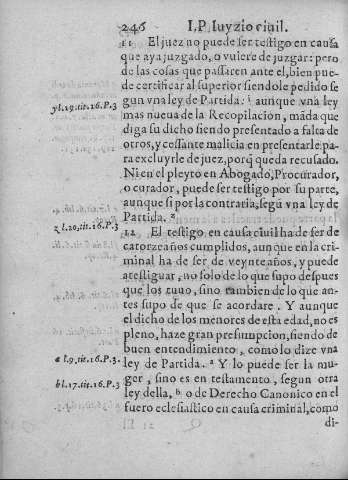 246 I.P. Iuyzio ciuil.
11 El juez no puede ser testigo en causa
que aya juzgado, o vuiere de juzgar: pero
de las cosas que passaren ante el, bien pue-
de certificar al superior siendole pedido se
gun vna ley de Partida: y aunque vna ley
yl.19.tit.16.P.3
mas nueua de la Recopilacion, māda que
diga su dicho siendo presentado a falta de
otros, y cessante malicia en presentarle pa-
ra excluyrle de juez, porq̄ queda recusado.
Ni en el pleyto en Abogado, Procurador,
o curador, puede ser testigo por su parte,
aunque si por la contraria, segū vna ley de
Partida. z
z l.20.tit.16.P.3
12 El testigo en causa ciuil ha de ser de
catorze años cumplidos, aunque en la cri-
minal ha de ser de veynte años, y puede
atestiguar, no solo de lo que supo despues
que los tuuo, sino tambien de lo que an-
tes supo de que se acordare. Y aunque
el dicho de los menores de esta edad, no es
pleno, haze gran presumpcion, siendo de
buen entendimiento, como lo dize vna
ley de Partida. a Y lo puede ser la mu-
a l.9.tit.16.P.3.
ger, sino es en testamento, segun otra
ley della, b o de Derecho Canonico en el
bl.17.tit.16.P.3
fuero eclesiastico en causa criminal, como
di-